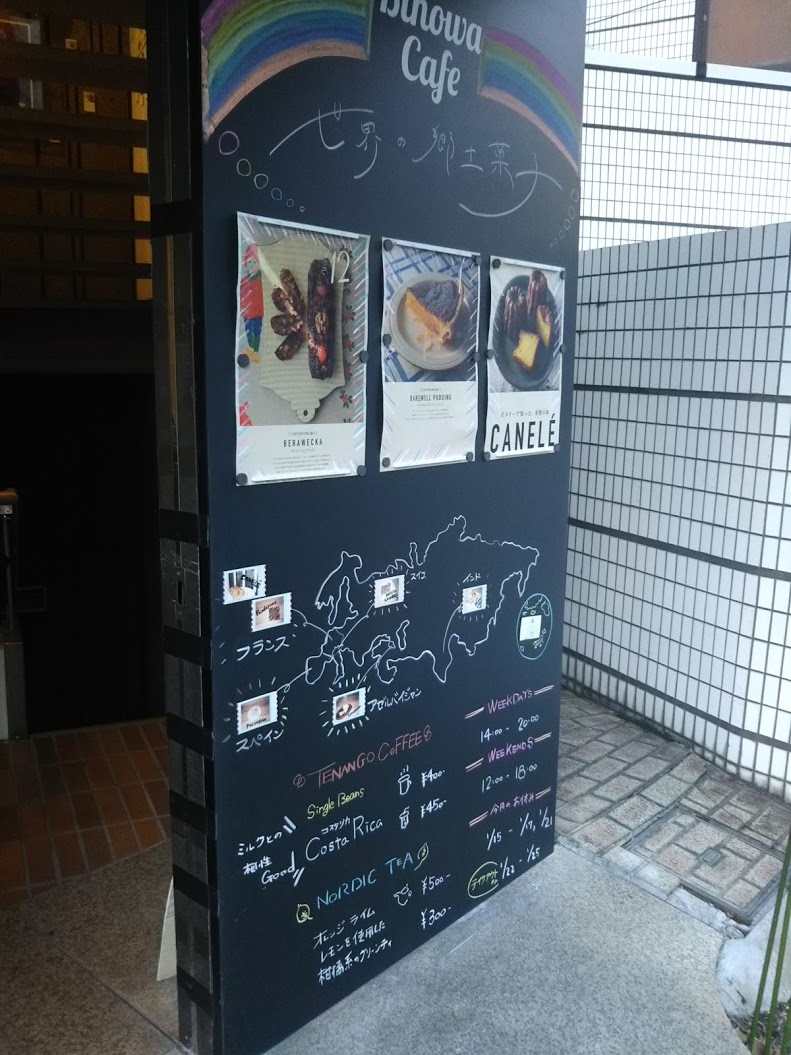 Binowa
Cafe
世界の郷土菓子
12
BERAWECKA
BAKEWELL PUDDING
CANELÉ
スイス
インド
フランス
スペイン
アゼルバイジャン
TENANGO COFFEE
Single Beans
¥400-
コスタリカ
Costa Rica
¥450-
ミルクとの
相性
Good
NORDIC TEA
¥500-
¥300-
オレンジ ライム
レモンを使用した
柑橘系のグリーンティ
WEEKDAYS
14:00 - 20:00
WEEKENDS
12:00 - 18:00
今月のお休み
1/15 - 1/17, 1/21
テイクアウトのみ
1/22 - 1/25